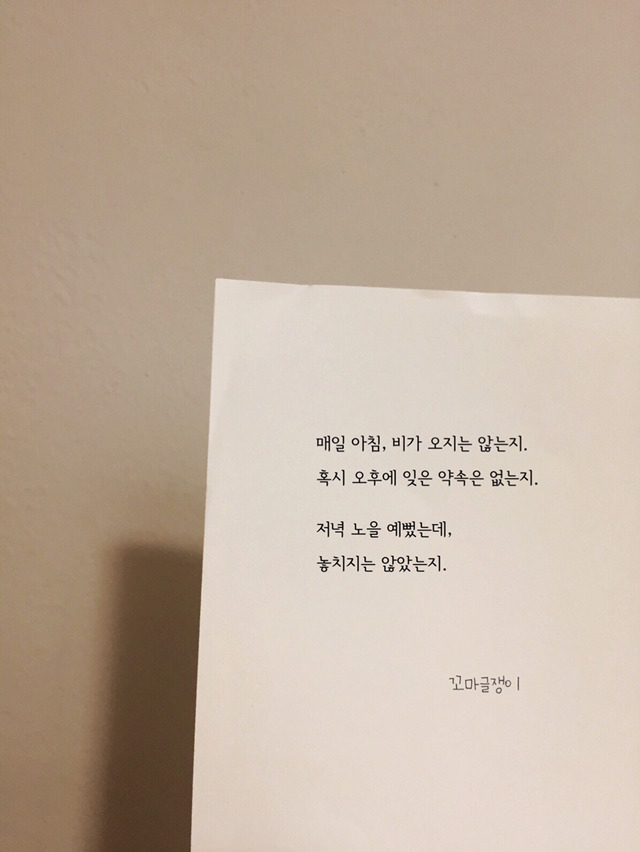 매일 아침, 비가 오지는 않는지.
혹시 오후에 잊은 약속은 없는지.
저녁 노을 예뻤는데,
놓치지는 않았는지.
꼬마글쟁이